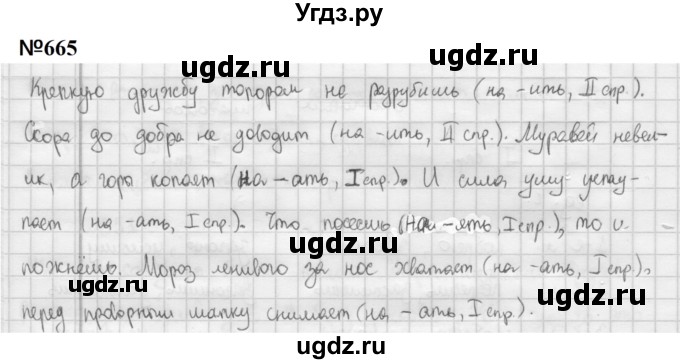 Угдз.ру
№665
ugdz.ru
ugdz.ru
Крепкую дружбу топором не разрубишь (на -ить, II спр.).
ugdz.ru
Ссора до добра не доводит (на -ить, II спр.). Муравей невел-
ugdz.ru
ик, а горы копает (на -ать, I спр.). И сила уму уступ-
ugdz.ru
пает (на -ать, I спр.). Что посеешь (на -ять, I спр.), то и
ugdz.ru
ugdz.ru
пожнёшь. Мороз ленивого за нос хватает (на -ать, I спр.),
ugdz.ru
перед проворным шапку снимает (на -ать, I спр.).
ugdz.ru